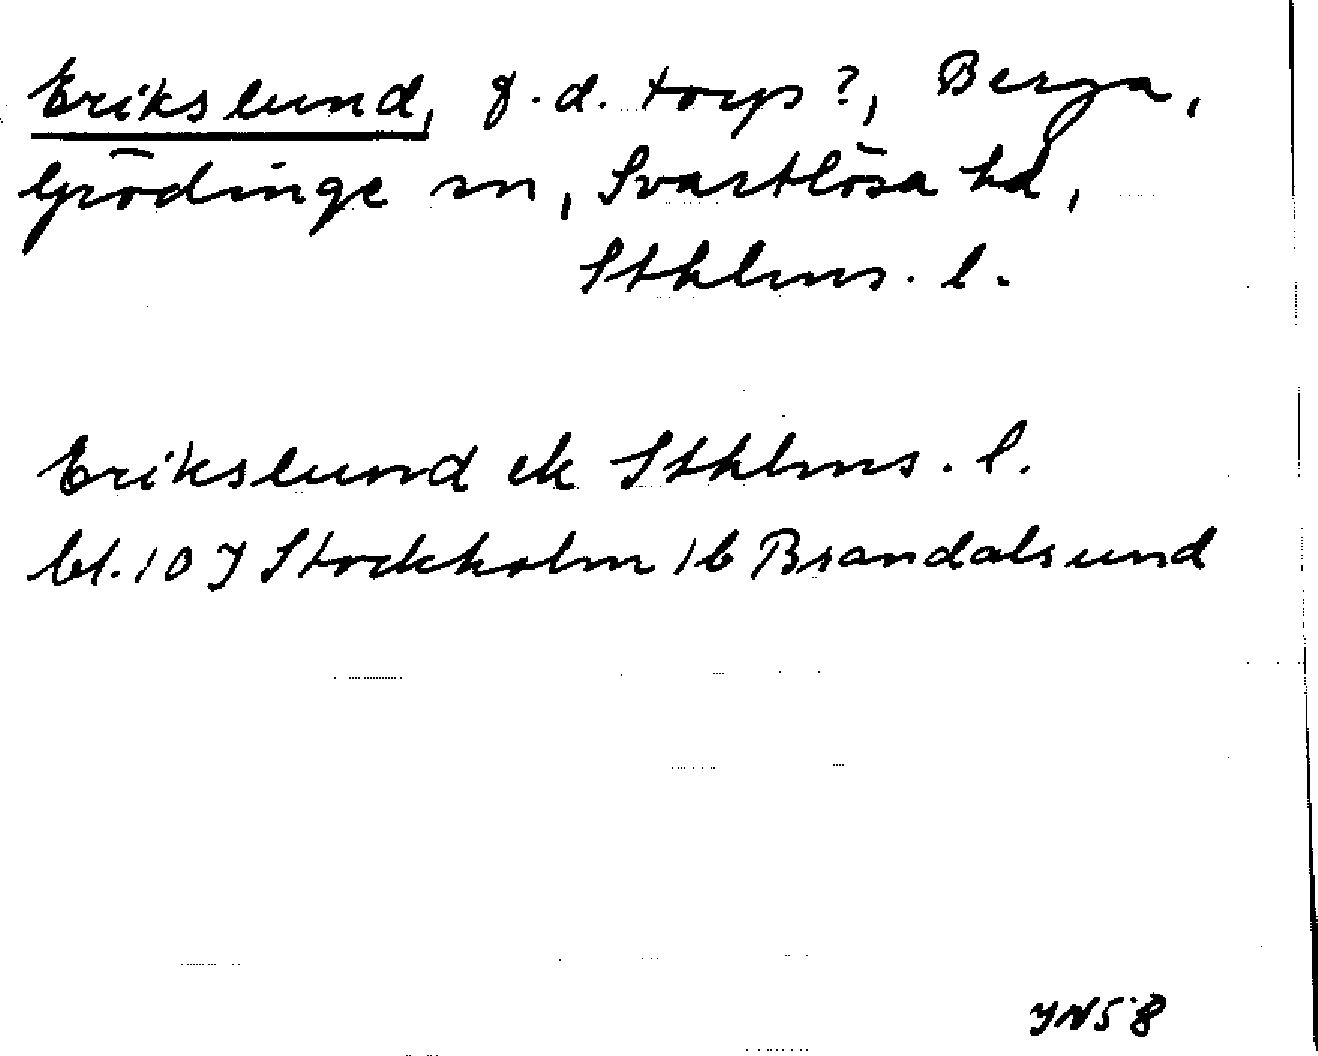 Erikslund, f.d. torp?, Berga,
Grödinge sn, Svartlösa hd,
Sthlms. l.
Erikslund ek Sthlms. l.
bl. 10 J Stockholm 1b Brandalsund
JN58